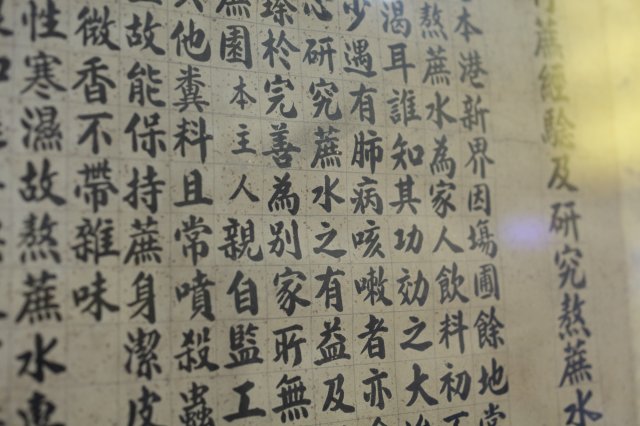 蔗經驗及研究熬蔗水
本港新界因塲圃餘地常
熬蔗水為家人飲料初不
渴耳誰知其功効之大
少遇有肺病咳嗽者亦
心研究蔗水之有益及
臻於完善為別家所無
蔗園本主人親自監工
他糞料且常噴殺蟲
故能保持蔗身潔皮
微香不帶雜味
性寒濕故熬蔗水專